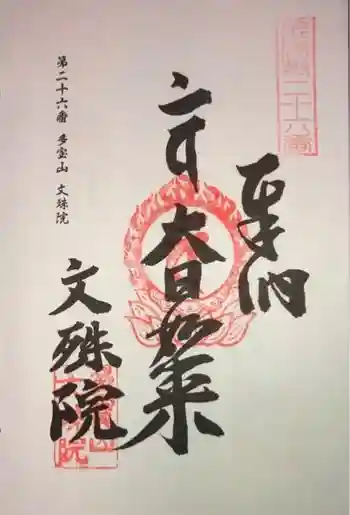 奉納
大日如来
文殊院
第二十六番 多宝山 文殊院
二十六番